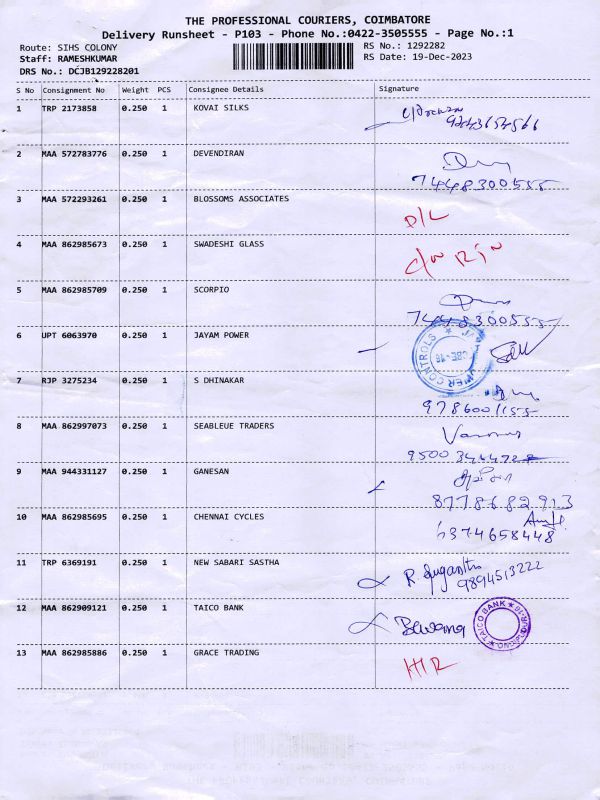 THE PROFESSIONAL COURIERS, COIMBATORE
Delivery Runsheet - P103 - Phone No.:0422-3505555 - Page No.:1
Route: SIHS COLONY
RS No.: 1292282
Staff: RAMESHKUMAR
RS Date: 19-Dec-2023
DRS No.: DCJB129228201
S No Consignment No Weight PCS Consignee Details Signature
1 TRP 2173858 0.250 1 KOVAI SILKS
2 MAA 572783776 0.250 1 DEVENDIRAN
7448300555
3 MAA 572293261 0.250 1 BLOSSOMS ASSOCIATES
D/L
4 MAA 862985673 0.250 1 SWADESHI GLASS
5 MAA 862985709 0.250 1 SCORPIO
7448300555
6 UPT 6063970 0.250 1 JAYAM POWER
7 RJP 3275234 0.250 1 S DHINAKAR
9786001155
8 MAA 862997073 0.250 1 SEABLEUE TRADERS
9 MAA 944331127 0.250 1 GANESAN
8778682913
10 MAA 862985695 0.250 1 CHENNAI CYCLES
11 TRP 6369191 0.250 1 NEW SABARI SASTHA
R. Suganthi
9894513222
12 MAA 862909121 0.250 1 TAICO BANK
TAICO BANK
13 MAA 862985886 0.250 1 GRACE TRADING